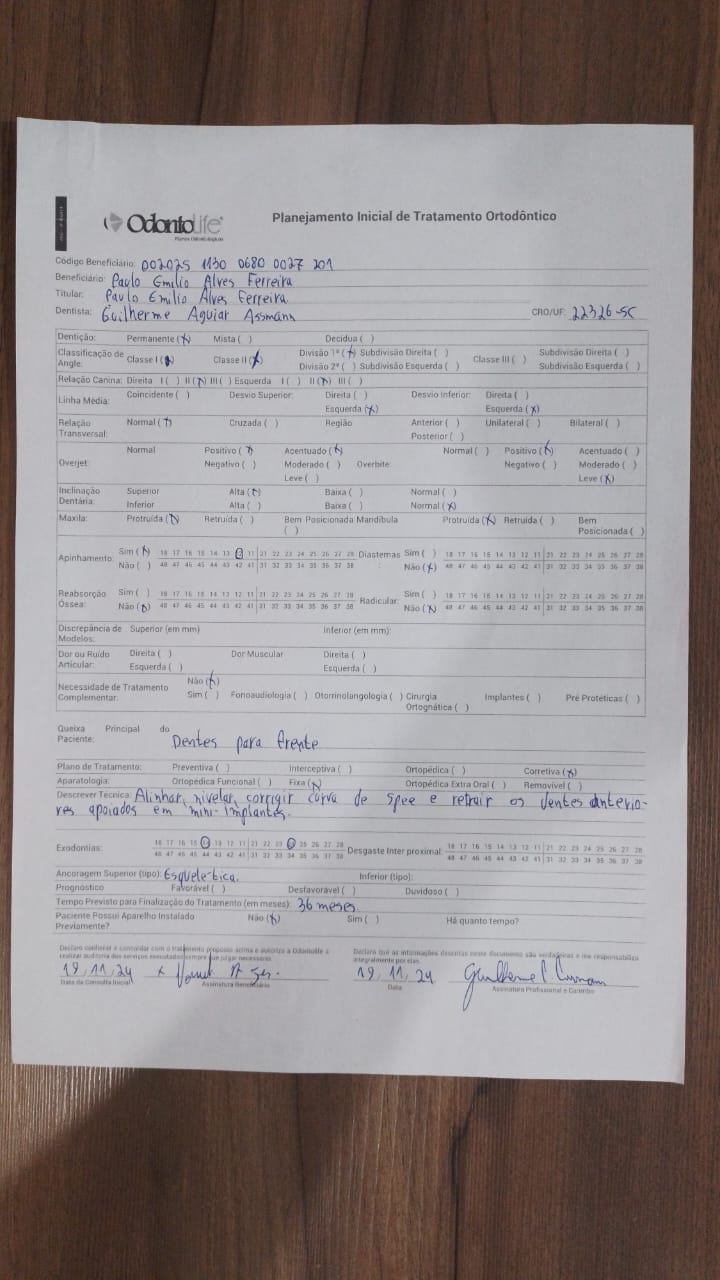 OdontoLife
Planos Odontológicos
Planejamento Inicial de Tratamento Ortodôntico
Código Beneficiário: 002025 1130 0680 0027 201
Beneficiário: Paulo Emilio Alves Ferreira
Titular: Paulo Emilio Alves Ferreira
Dentista: Guilherme Aguiar Assmann CRO/UF: 22326-SC
Dentição: Permanente (x) Mista ( ) Decídua ( )
Classificação de Angle: Classe I ( ) Classe II (x) Divisão 1ª (x) Subdivisão Direita ( ) Classe III ( ) Subdivisão Direita ( )
Divisão 2ª ( ) Subdivisão Esquerda ( ) Subdivisão Esquerda ( )
Relação Canina: Direita I ( ) II (x) III ( ) Esquerda I ( ) II (x) III ( )
Linha Média: Coincidente ( ) Desvio Superior: Direita ( ) Desvio Inferior: Direita ( )
Esquerda (x) Esquerda (x)
Relação Transversal: Normal (x) Cruzada ( ) Região Anterior ( ) Unilateral ( ) Bilateral ( )
Posterior ( )
Overjet: Normal Positivo (x) Acentuado (x) Overbite: Normal ( ) Positivo (x) Acentuado ( )
Negativo ( ) Moderado ( ) Negativo ( ) Moderado ( )
Leve ( ) Leve (x)
Inclinação Dentária: Superior Alta (x) Baixa ( ) Normal ( )
Inferior Alta ( ) Baixa ( ) Normal (x)
Maxila: Protruída (x) Retruída ( ) Bem Posicionada ( ) Mandíbula Protruída (x) Retruída ( ) Bem Posicionada ( )
Apinhamento: Sim (x) 18 17 16 15 14 13 12 11 21 22 23 24 25 26 27 28 Diastemas: Sim ( ) 18 17 16 15 14 13 12 11 21 22 23 24 25 26 27 28
Não ( ) 48 47 46 45 44 43 42 41 31 32 33 34 35 36 37 38 Não (x) 48 47 46 45 44 43 42 41 31 32 33 34 35 36 37 38
Reabsorção Óssea: Sim ( ) 18 17 16 15 14 13 12 11 21 22 23 24 25 26 27 28 Radicular: Sim ( ) 18 17 16 15 14 13 12 11 21 22 23 24 25 26 27 28
Não (x) 48 47 46 45 44 43 42 41 31 32 33 34 35 36 37 38 Não (x) 48 47 46 45 44 43 42 41 31 32 33 34 35 36 37 38
Discrepância de Modelos: Superior (em mm) Inferior (em mm):
Dor ou Ruído Articular: Direita ( ) Dor Muscular Direita ( )
Esquerda ( ) Esquerda ( )
Necessidade de Tratamento Complementar: Não (x)
Sim ( ) Fonoaudiologia ( ) Otorrinolangologia ( ) Cirurgia Ortognática ( ) Implantes ( ) Pré Protéticas ( )
Queixa Principal do Paciente: Dentes para frente
Plano de Tratamento: Preventiva ( ) Interceptiva ( ) Ortopédica ( ) Corretiva (x)
Aparatologia: Ortopédica Funcional ( ) Fixa (x) Ortopédica Extra Oral ( ) Removível ( )
Descrever Técnica: Alinhar, nivelar, corrigir curva de spee e retrair os dentes anterio-
res apoiados em mini-implantes.
Exodontias: 18 17 16 15 14 13 12 11 21 22 23 24 25 26 27 28 Desgaste Inter proximal: 18 17 16 15 14 13 12 11 21 22 23 24 25 26 27 28
48 47 46 45 44 43 42 41 31 32 33 34 35 36 37 38 48 47 46 45 44 43 42 41 31 32 33 34 35 36 37 38
Ancoragem Superior (tipo): Esquelética. Inferior (tipo):
Prognóstico Favorável ( ) Desfavorável ( ) Duvidoso ( )
Tempo Previsto para Finalização do Tratamento (em meses): 36 meses.
Paciente Possui Aparelho Instalado Previamente? Não (x) Sim ( ) Há quanto tempo?
Declaro conhecer e concordar com o tratamento proposto acima e autorizo a Odontolife a
realizar auditoria dos serviços executados sempre que julgar necessário.
Declaro que as informações descritas neste documento são verdadeiras e me responsabilizo
integralmente por elas.
19,11,24 x 19,11,24
Data da Consulta Inicial Assinatura Beneficiário Data Assinatura Profissional e Carimbo